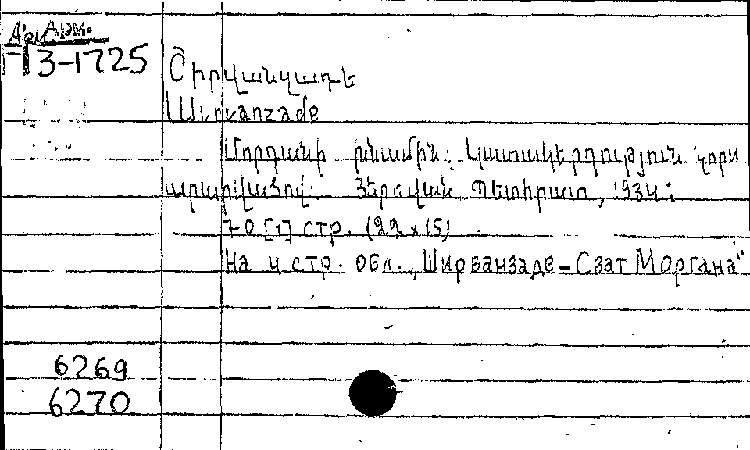 Арм.
П3-1725
Շիրվանզադե
Širvanzade
Մորգանի խնամին: Կատակերգություն չորս
արարվածով. Յերևան, Պետհրատ, 1934:
70 [1] стр. (22 x 15)
На 4 стр. обл. "Ширванзаде – Сват Моргана"
6269
6270